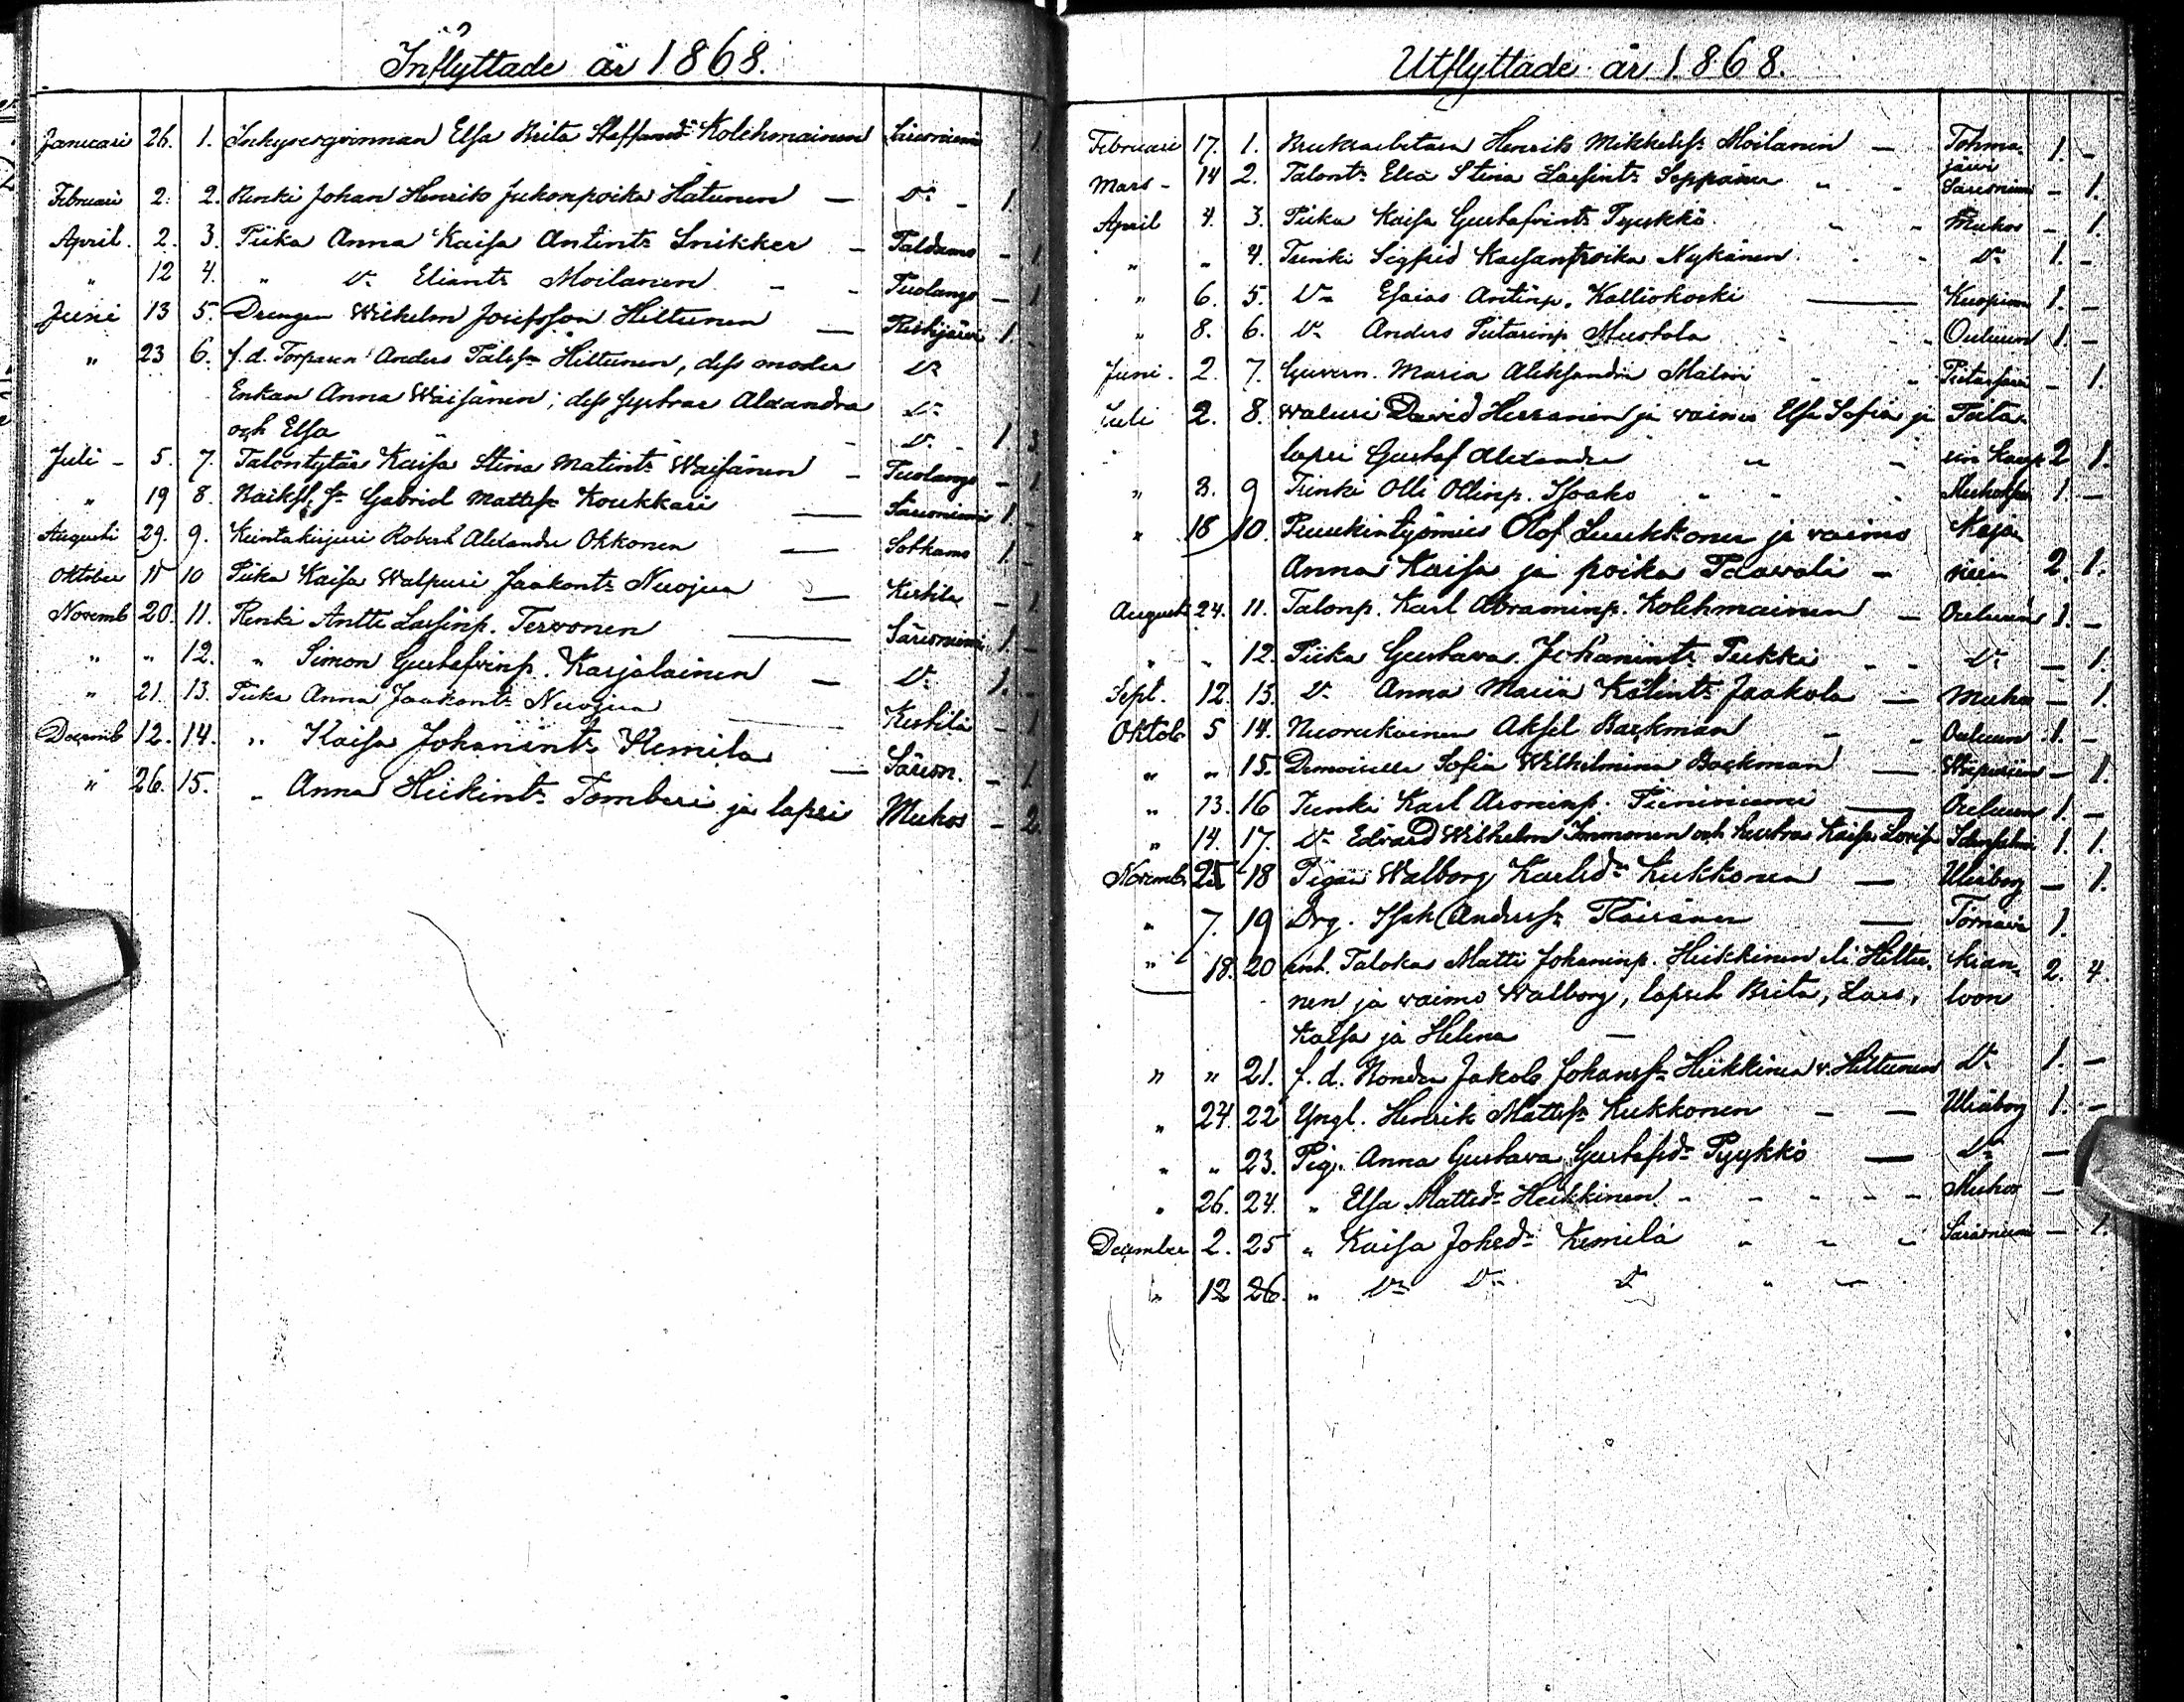 Inflyttade år 1868.
Januari 26. 1. Inhysesqvinnan Elsa Brita Staffansd:r Kolehmainen Säresniemi 1.
Februari 2. 2. Renki Johan Henrik Jukonpoika Hätunen — D:o - 1.
April. 2. 3. Piika Anna Kaisa Antint:r Snikker — Paldamo - 1
" 12 4. " D:o Eliant:r Moilanen - - Puolango — 1
Juni 13 5. Drengen Wilhelm Josefsson Hiltunen — Pühäjärvi 1. -
" 23 6. f.d. Torparen Anders Pålss:n Hiltunen, dess moder D:o
Enkan Anna Wäisänen; dess systrar Alexandra D:o
och Elsa - D:o - 1. 3
Juli - 5. 7. Talontytär Kaisa Stina Matint:r Wäisänen — Puolango - 1
" 19 8. Gabriel Mattss:n Koukkari — Säresniemi 1. -
Augusti 29. 9. Kuntakirjuri Robert Alexander Okkonen — Sotkamo 1. -
Oktober 11 10 Piika Kaisa Walpuri Jaakont:r Nuojua — Kestilä — 1
Novemb 20. 11. Renki Antti Lassinp. Tervonen — Säresniemi 1. -
" " 12. " Simon Gustafvinp. Karjalainen — D:o 1. -
" 21. 13. Piika Anna Jaakont:r Nuojua — Kestilä - 1
Decemb 12. 14. " Kaisa Johanint:r Kemilä — Säresn. - 1
" 26. 15. " Anna Heikint:r Tomberi ja lapsi Muhos - 2.
Utflyttade år 1868.
Februari 17. 1. Bruksarbetaren Henrik Mikkelss:n Moilanen — Tohma- 1. -
järvi
Mars - 14 2. Talont:r Elsa Stina Lassint:r Seppänen " - Säresniemi - 1.
April 4. 3. Piika Kaisa Gustafvint:r Pyykkö. " " Muhos - 1.
" " 4. Trenki Sigfrid Kaisanpoika Nykänen - - D:o 1. -
" 6. 5. D:o Esaias Antinp. Kalliokoski — Kuopioon 1. -
" 8. 6. D:o Anders Pietarinp Mustola - - Ouluun 1. -
Juni. 2. 7. Guvern. Maria Aleksandra Malm " " Pietarsaari - 1.
Juli 2. 8. Waluri David Herranen ja vaimo Elsa Sofia ja Pieta-
lapsi Gustaf Alexander " - rin Kaup 2 1.
" 3. 9 Trenki Olli Ollinp. Isoaho - - - Muhokse 1 -
" 18 10. Ruukintyömies Olof Luukkonen ja vaimo Kaja-
Anna Kaisa ja poika Taavali - niin 2. 1.
Augusti 24. 11. Talonp. Karl Abraminp. Kolehmainen — Ouluun 1. -
" " 12. Piika Gustava Johanint:r Tukki - - D:o — 1.
Sept. 12. 13. D:o Anna Maria Kalint:r Jaakola — Muhos — 1.
Oktob 5 14. Nuorukainen Aksel Backman - - Ouluun 1. -
" " 15. Demoiselle Sofia Wilhelmina Backman — Wiipuriin — 1.
" 13. 16 Trenki Karl Aroninp. Piiriniemi — Ouluun 1. -
" 14. 17. D:o Edvard Wilhelm Immonen och hustrun Kaisa Lovisa 1. 1.
Novemb. 25 18 Pigan Walborg Karlsd:r Kukkonen — Uleåborg — 1.
" 7. 19 Drg. Isak Anderss:n Räisänen — Törnävä 1.
" 18. 20 ent. Talokas Matti Johaninp. Heikkinen eli Hiltu- Kian- 2. 4.
nen ja vaimo Walborg, lapset Brita, Lars, toon
Kaisa ja Helena —
" " 21. f.d. Bonden Jakob Johanss:n Heikkinen v. Hiltunen D:o 1. —
" 24. 22 Yngl. Henrik Mattss:n Kukkonen - — Uleåborg 1. —
" " 23. Pig. Anna Gustava Gustafsd:r Pyykkö — D:o —
" 26. 24. " Elsa Mattsd:r Heikkinen - - - - - Muhos —
December 2. 25 " Kaisa Johsd:r Kemilä " " " Säräisniemi — 1.
" 12 26. " D:o D:o D:o " —